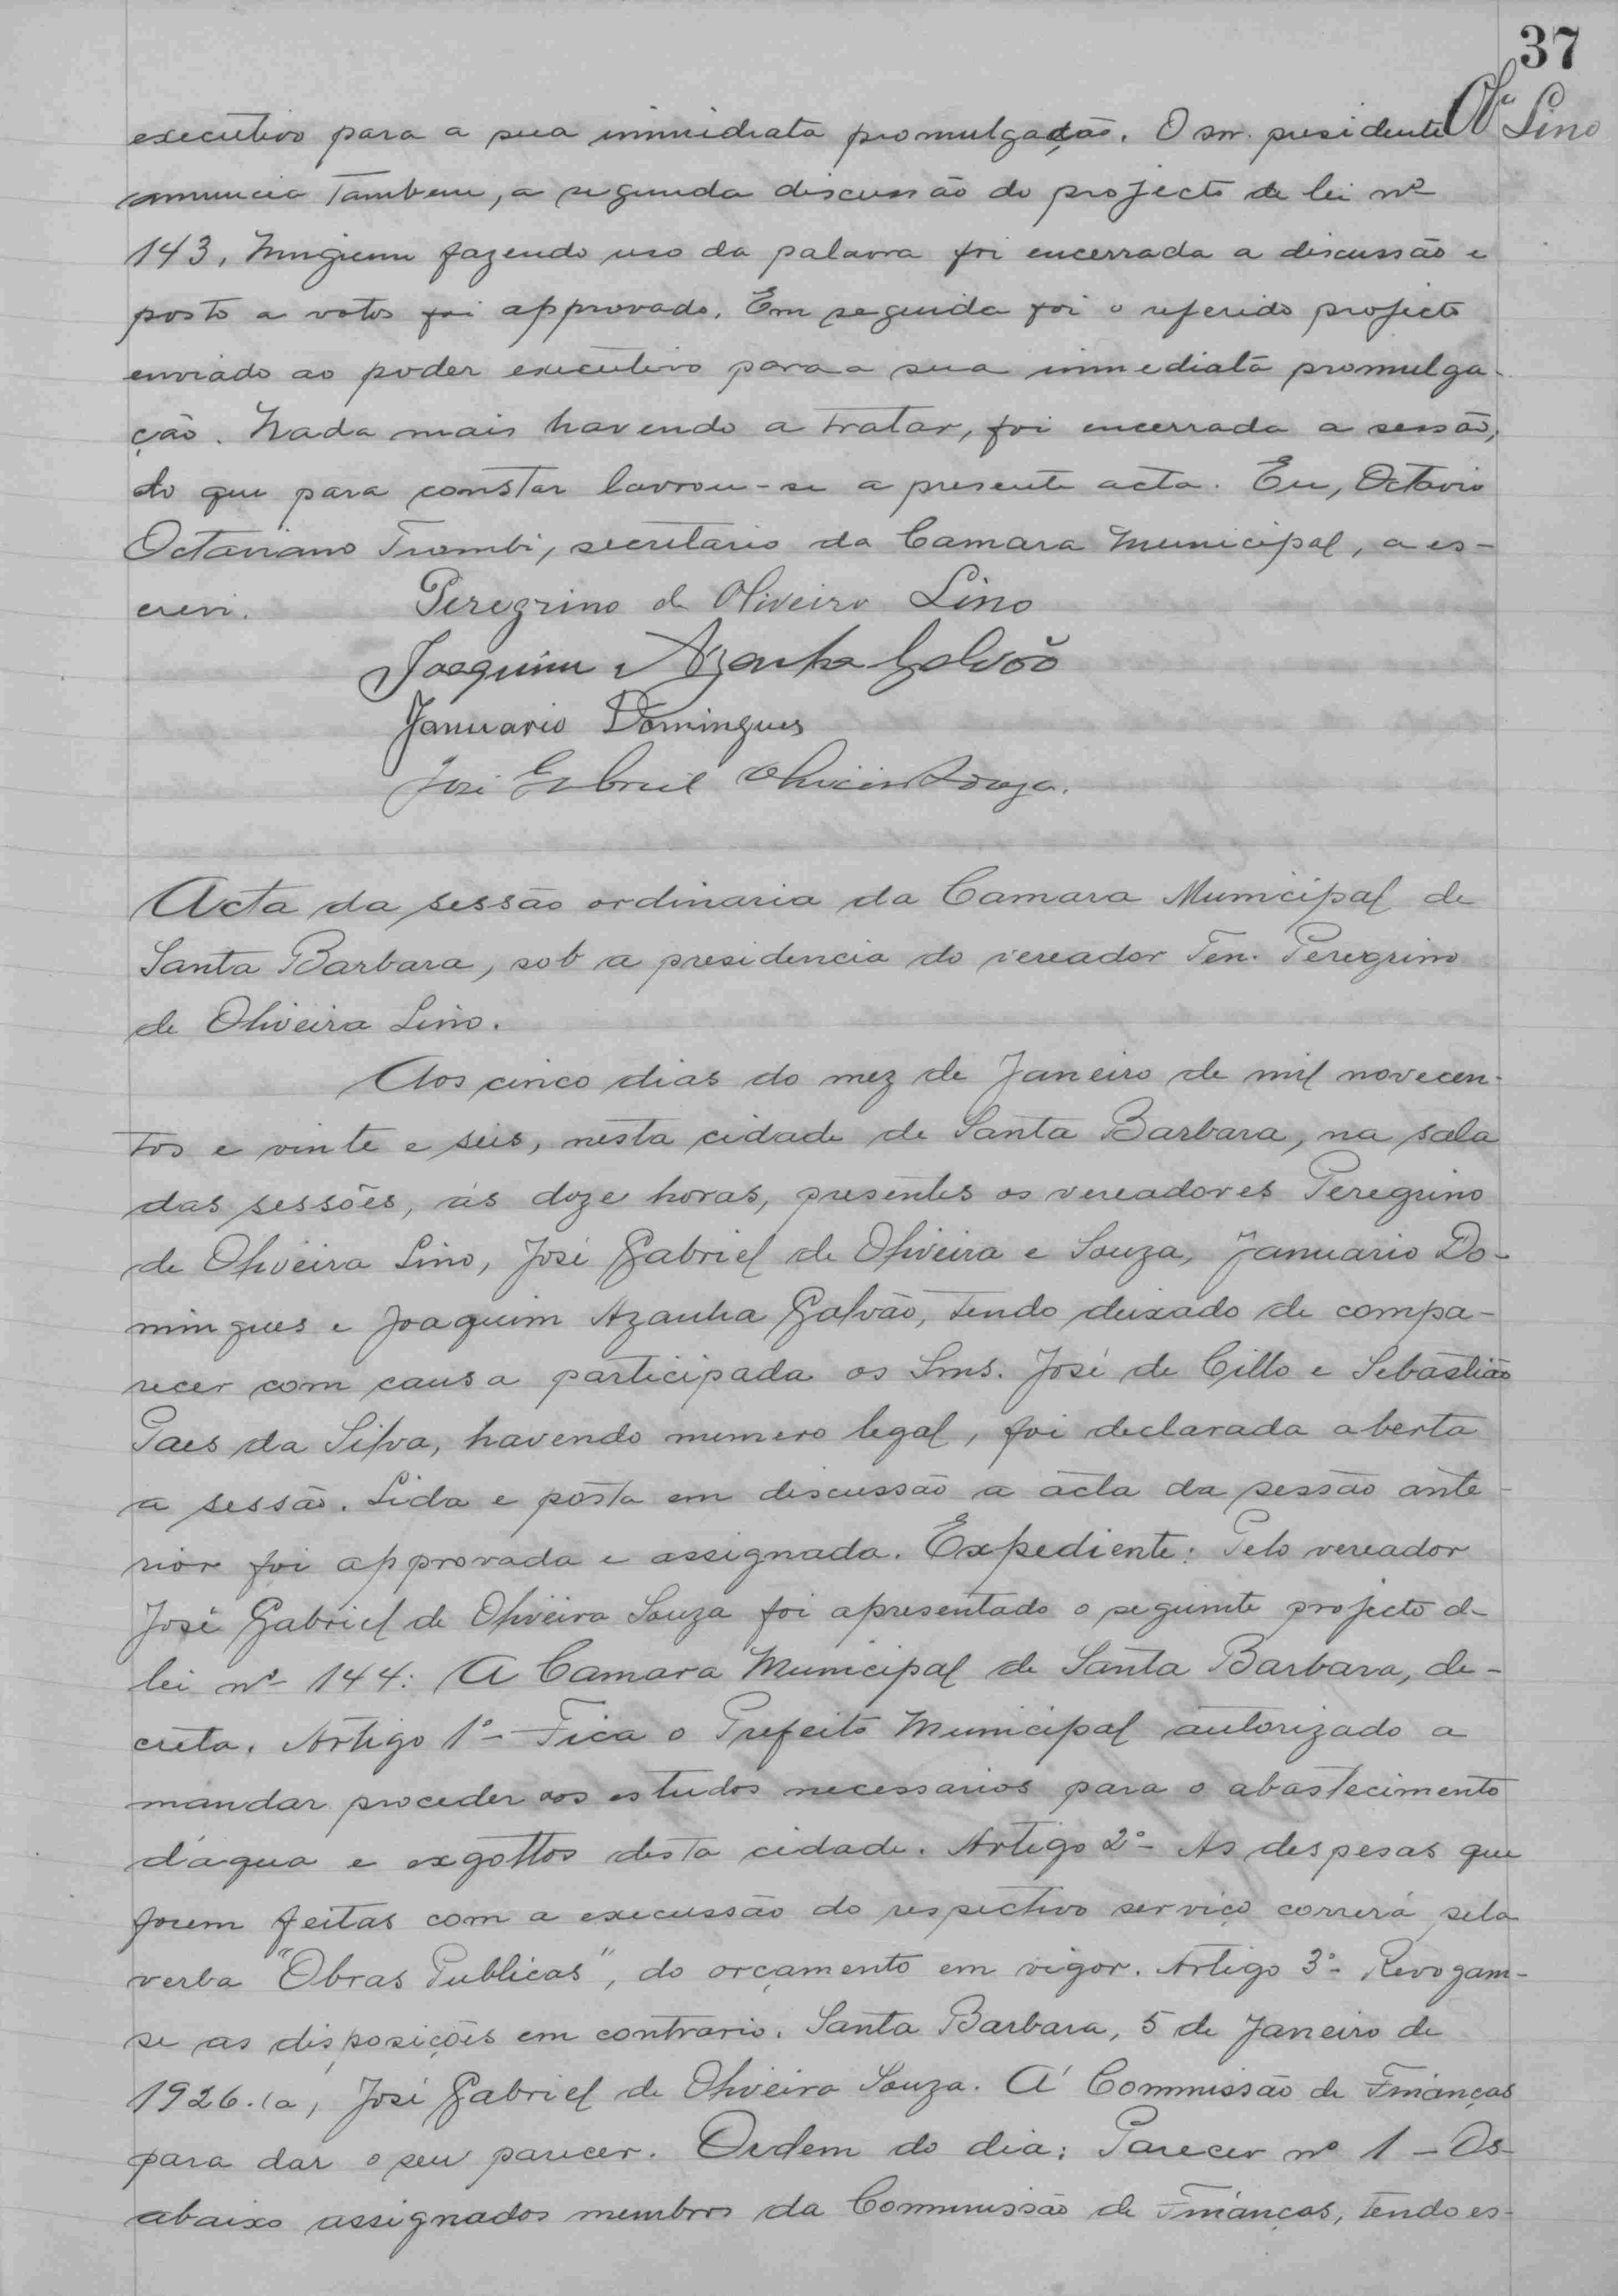 37
Olª Lino
executivo para a sua immidiata promulgação. O snr. presidente
annuncia tambem, a segunda discussão do projecto de lei nº
143. Ninguem fazendo uso da palavra foi encerrada a discussão e
posto a votos foi approvado. Em seguida foi o referido projecto
enviado ao poder executivo para a sua immediata promulga-
ção. Nada mais havendo a tratar, foi encerrada a sessão,
do que para constar lavrou-se a presente acta. Eu, Octavio
Octaviano Trombi, secretario da Camara Municipal, a es-
crevi.
Peregrino de Oliveira Lino
Joaquim Azanha Galvão
Januario Domingues
José Gabriel Oliveira Souza.
Acta da sessão ordinaria da Camara Municipal de
Santa Barbara, sob a presidencia do vereador Ten. Peregrino
de Oliveira Lino.
Aos cinco dias do mez de Janeiro de mil novecen-
tos e vinte e seis, nesta cidade de Santa Barbara, na sala
das sessões, ás doze horas, presentes os vereadores Peregrino
de Oliveira Lino, José Gabriel de Oliveira e Souza, Januario Do-
mingues e Joaquim Azanha Galvão, tendo deixado de compa-
recer com causa participada os Snrs. José de Cillo e Sebastião
Paes da Silva, havendo numero legal, foi declarada aberta
a sessão. Lida e posta em discussão a acta da sessão ante-
rior foi approvada e assignada. Expediente: Pelo vereador
José Gabriel de Oliveira Souza foi apresentado o seguinte projecto de
lei nº 144: A Camara Municipal de Santa Barbara, de-
creta. Artigo 1º- Fica o Prefeito Municipal autorizado a
mandar proceder aos estudos necessarios para o abastecimento
d'agua e exgottos desta cidade. Artigo 2º- As despesas que
forem feitas com a execussão do respectivo serviço correrá pela
verba "Obras Publicas", do orçamento em vigor. Artigo 3º- Revogam-
se as disposições em contrario. Santa Barbara, 5 de Janeiro de
1926. (a, José Gabriel de Oliveira Souza. A' Commissão de Finanças
para dar o seu parecer. Ordem do dia: Parecer nº 1 - Os
abaixo assignados membros da Commissão de Finanças, tendo es-